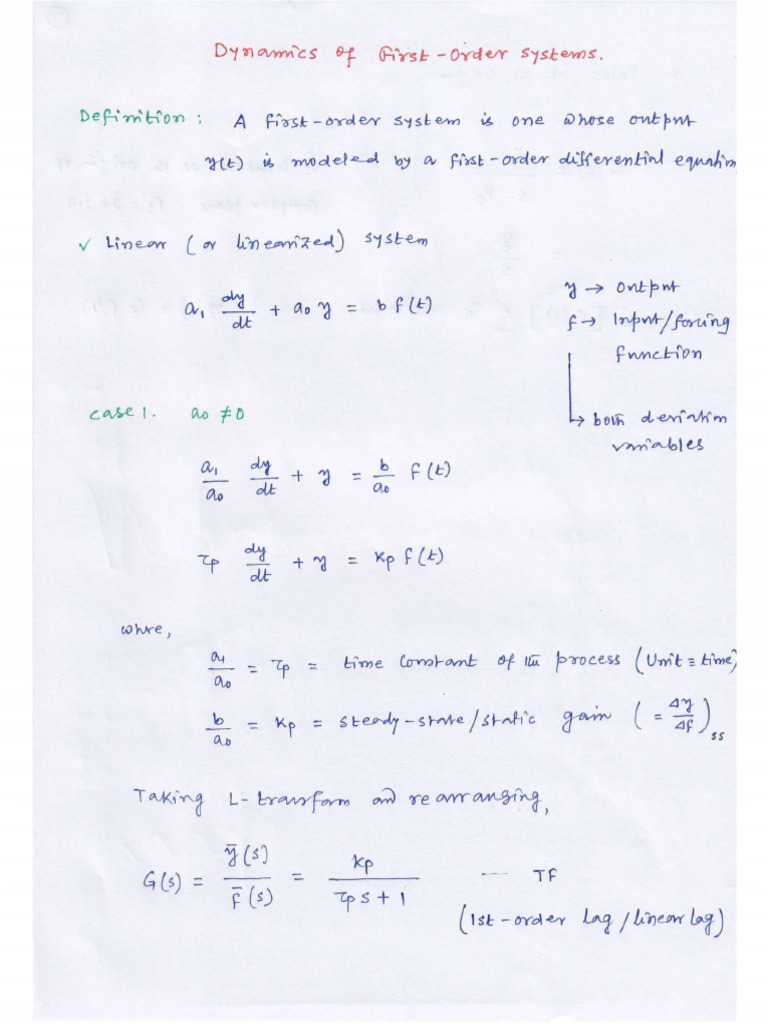 Dynamics of First-Order Systems.
Definition : A first-order system is one whose output
y(t) is modeled by a first-order differential equation
✓ Linear (or linearized) system
a₁ dy/dt + a₀ y = b f(t)
y → output
f → Input/forcing
function
↳ both deviation
variables
Case 1. a₀ ≠ 0
a₁/a₀ dy/dt + y = b/a₀ f(t)
τp dy/dt + y = Kp f(t)
whre,
a₁/a₀ = τp = time constant of the process (Unit ≡ time)
b/a₀ = Kp = steady-state/static gain (= Δy/Δf)ss
Taking L-transform and rearranging,
G(s) = ȳ(s)/f̄(s) = Kp/(τp s + 1) ---- TF
(1st-order lag/linear lag)